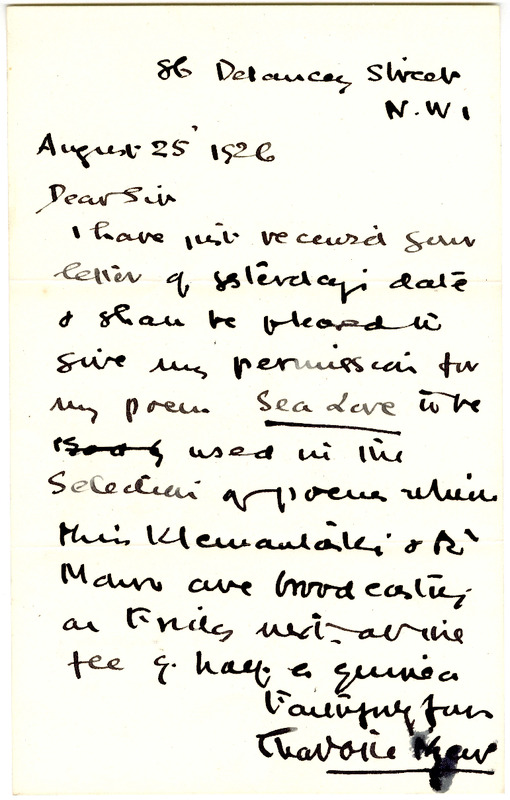 86 Delancey Street
N.W1
August 25 1926
Dear Sir
I have just received your
letter of yesterday's date
& shall be pleased to
give my permission for
my poem Sea Love to be
used in the
Selection of poems which
Miss Klemantaski & Mr
Monro are broadcasting
on Friday next, at the
fee of half a guinea
Faithfully yours
Charlotte Mew